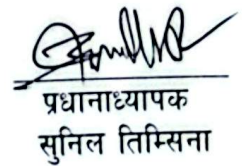 प्रधानाध्यापक
सुनिल तिम्सिना